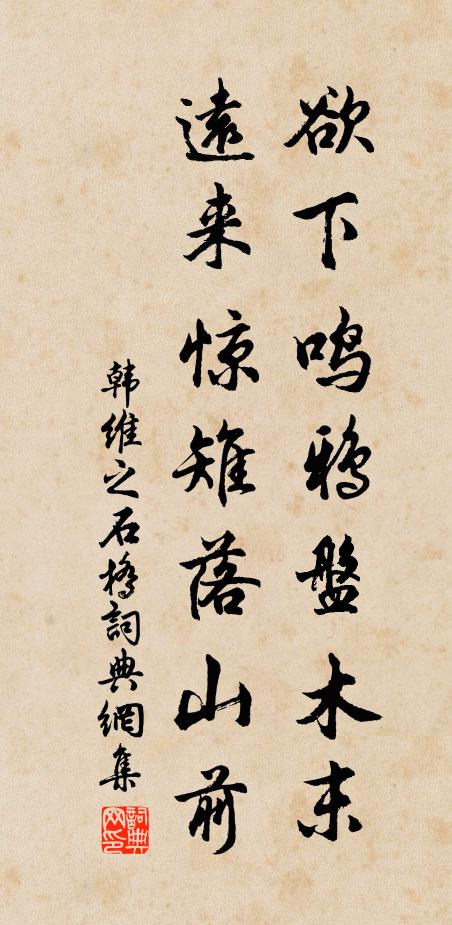 欲下鸣鸦盤木末
遠来惊雉落山前
韩维之石橋詞典網集
詞典网印